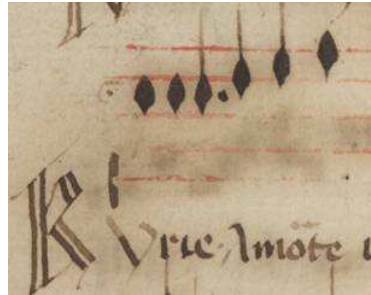 Kyrie Amōte